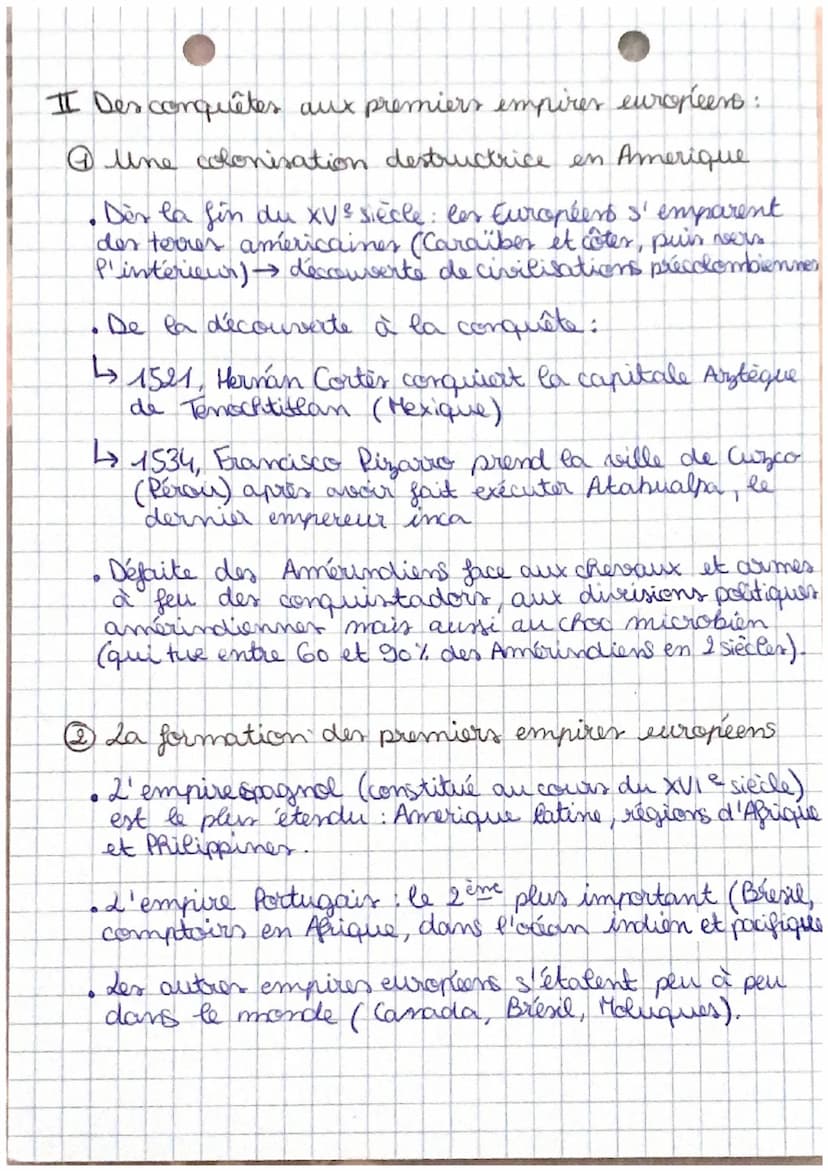 II Des conquêtes aux premiers empires européens :
① Une colonisation destructrice en Amerique
. Dès la fin du XVe siècle : les Européens s'emparent
des terres américaines (Caraïbes et côtes, puis vers
l'intérieur) → découverte de civilisations précolombiennes
. De la découverte à la conquête :
↳ 1521, Hernán Cortès conquiert la capitale Aztèque
de Tenochtitlan (Mexique)
↳ 1534, Francisco Pizarro prend la ville de Cuzco
(Pérou) après avoir fait exécuter Atahualpa, le
dernier empereur inca
. Défaite des Amérindiens face aux chevaux et armes
à feu des conquistadors, aux divisions politiques
amérindiennes mais aussi au choc microbien
(qui tue entre 60 et 90% des Amérindiens en 2 siècles).
② La formation des premiers empires européens
. L'empire espagnol (constitué au cours du XVIe siècle)
est le plus étendu : Amerique latine, régions d'Afrique
et Philippines.
. L'empire Portugais : le 2ème plus important (Brésil,
comptoirs en Afrique, dans l'océan indien et pacifique
. Les autres empires européens s'étalent peu à peu
dans le monde (Canada, Brésil, Moluques).